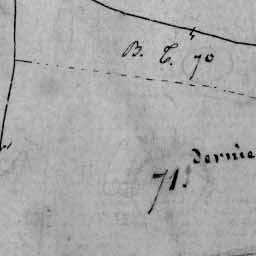 B. T. 70
71. Dernie